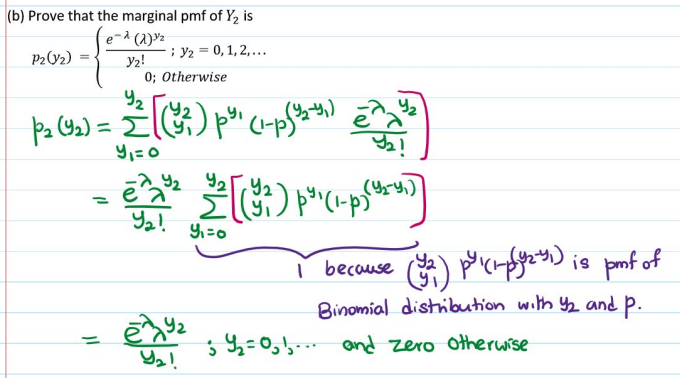 (b) Prove that the marginal pmf of Y₂ is
p₂(y₂) = { e^{−λ} (λ)^{y₂} / y₂! ; y₂ = 0, 1, 2, …
0; Otherwise
p₂(y₂) = Σ_{y₁=0}^{y₂} [ (y₂ y₁) p^{y₁} (1-p)^{(y₂-y₁)} e^{-λ} λ^{y₂} / y₂! ]
= e^{-λ} λ^{y₂} / y₂! Σ_{y₁=0}^{y₂} [ (y₂ y₁) p^{y₁} (1-p)^{(y₂-y₁)} ]
1 because (y₂ y₁) p^{y₁} (1-p)^{(y₂-y₁)} is pmf of
Binomial distribution with y₂ and p.
= e^{-λ} λ^{y₂} / y₂! ; y₂ = 0, 1, ... and zero otherwise